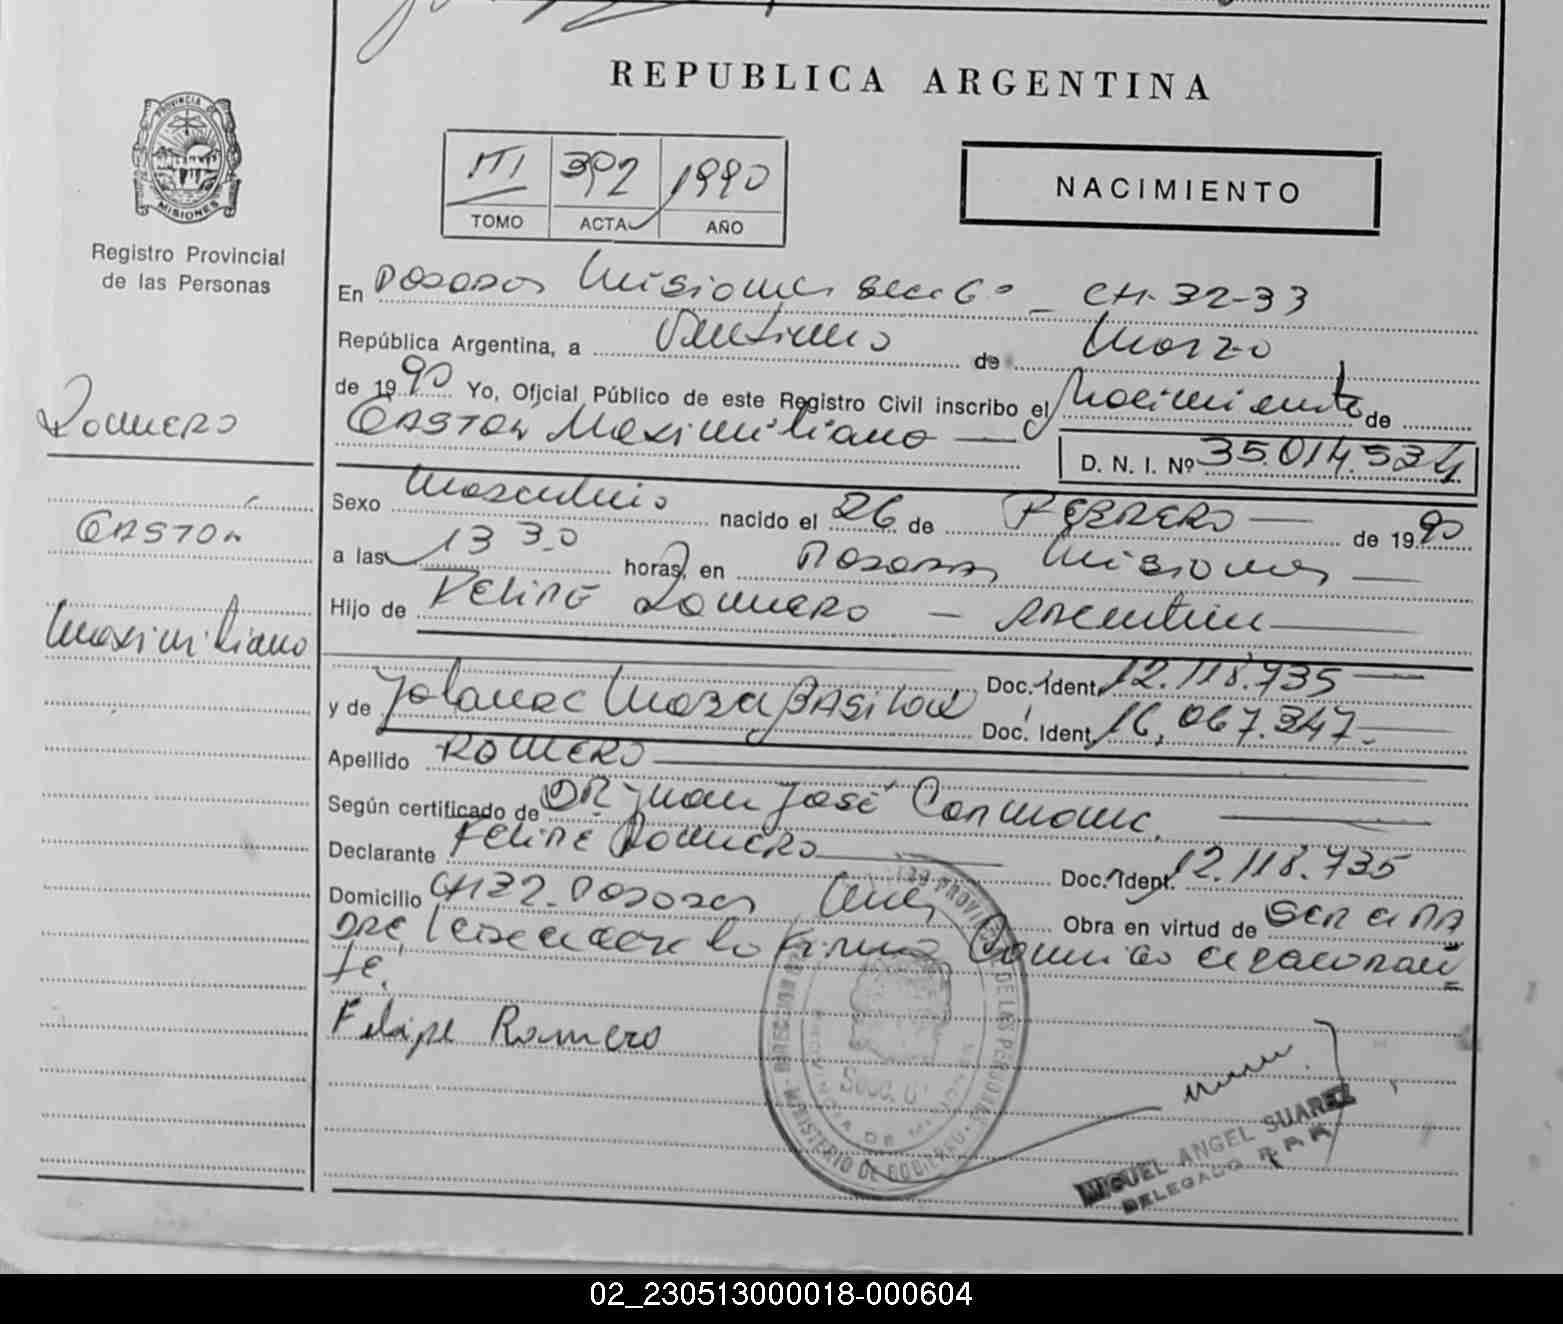 REPUBLICA ARGENTINA
PROVINCIA DE
MISIONES
Registro Provincial
de las Personas
III 392 1990
TOMO ACTA AÑO
NACIMIENTO
En Posadas Misiones Secc 6ª - CH. 32-33
República Argentina, a Veintiuno de Marzo
de 1990 Yo, Oficial Público de este Registro Civil inscribo el Nacimiento de
GASTON Maximiliano
D. N. I. Nº 35.014.534
Romero
GASTON
Maximiliano
Sexo Masculino nacido el 26 de FEBRERO de 1990
a las 13 30 horas, en Posadas Misiones
Hijo de FELIPE ROMERO - Argentino
Doc. Ident. 12.118.735
y de Yolanda
Doc. Ident. 16.067.347
Apellido ROMERO
Según certificado de DR. Juan José
Declarante FELIPE ROMERO
Doc. Ident. 12.118.735
Domicilio CH 32. Posadas Mnes
Obra en virtud de SER EL PA
DRE, Leida el acta la firma conmigo
fé.
Felipe Romero
DE LAS PERSONAS
MINISTERIO DE GOBIERNO
PROVINCIA DE MISIONES
Secc. 6ª
MIGUEL ANGEL SUAREZ
DELEGADO
02_230513000018-000604